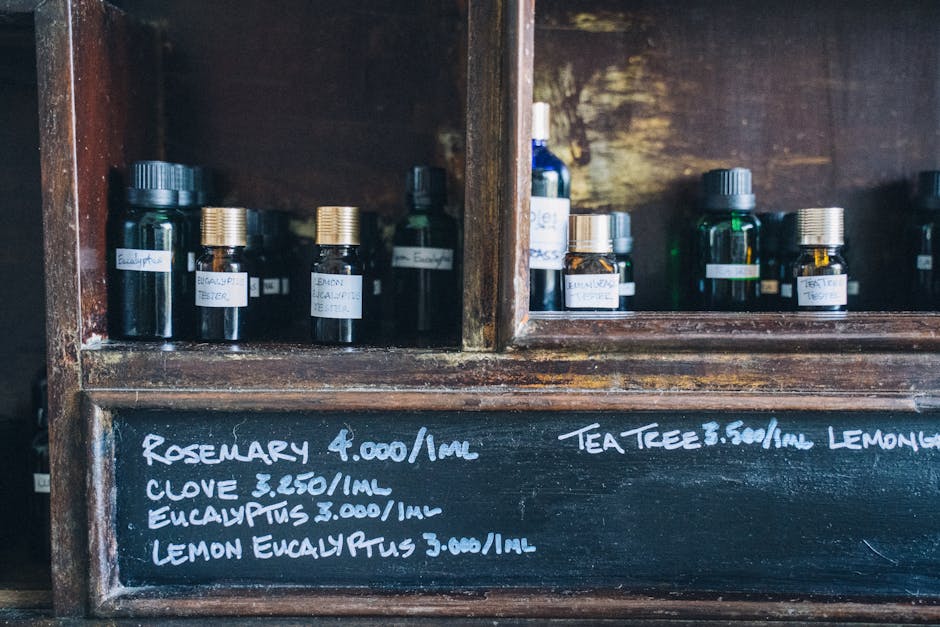 Eucalyptus
EUCALYPTUS
TESTER
LEMON
EUCALYPTUS
TESTER
Lemon Eucalyptus
LEMONGRASS
TESTER
TEA TREE
TEATREE
TESTER
ROSEMARY 4.000/1ML
CLOVE 3.250/1ML
EUCALYPTUS 3.000/1ML
LEMON EUCALYPTUS 3.000/1ML
TEA TREE 3.500/1ML LEMONG